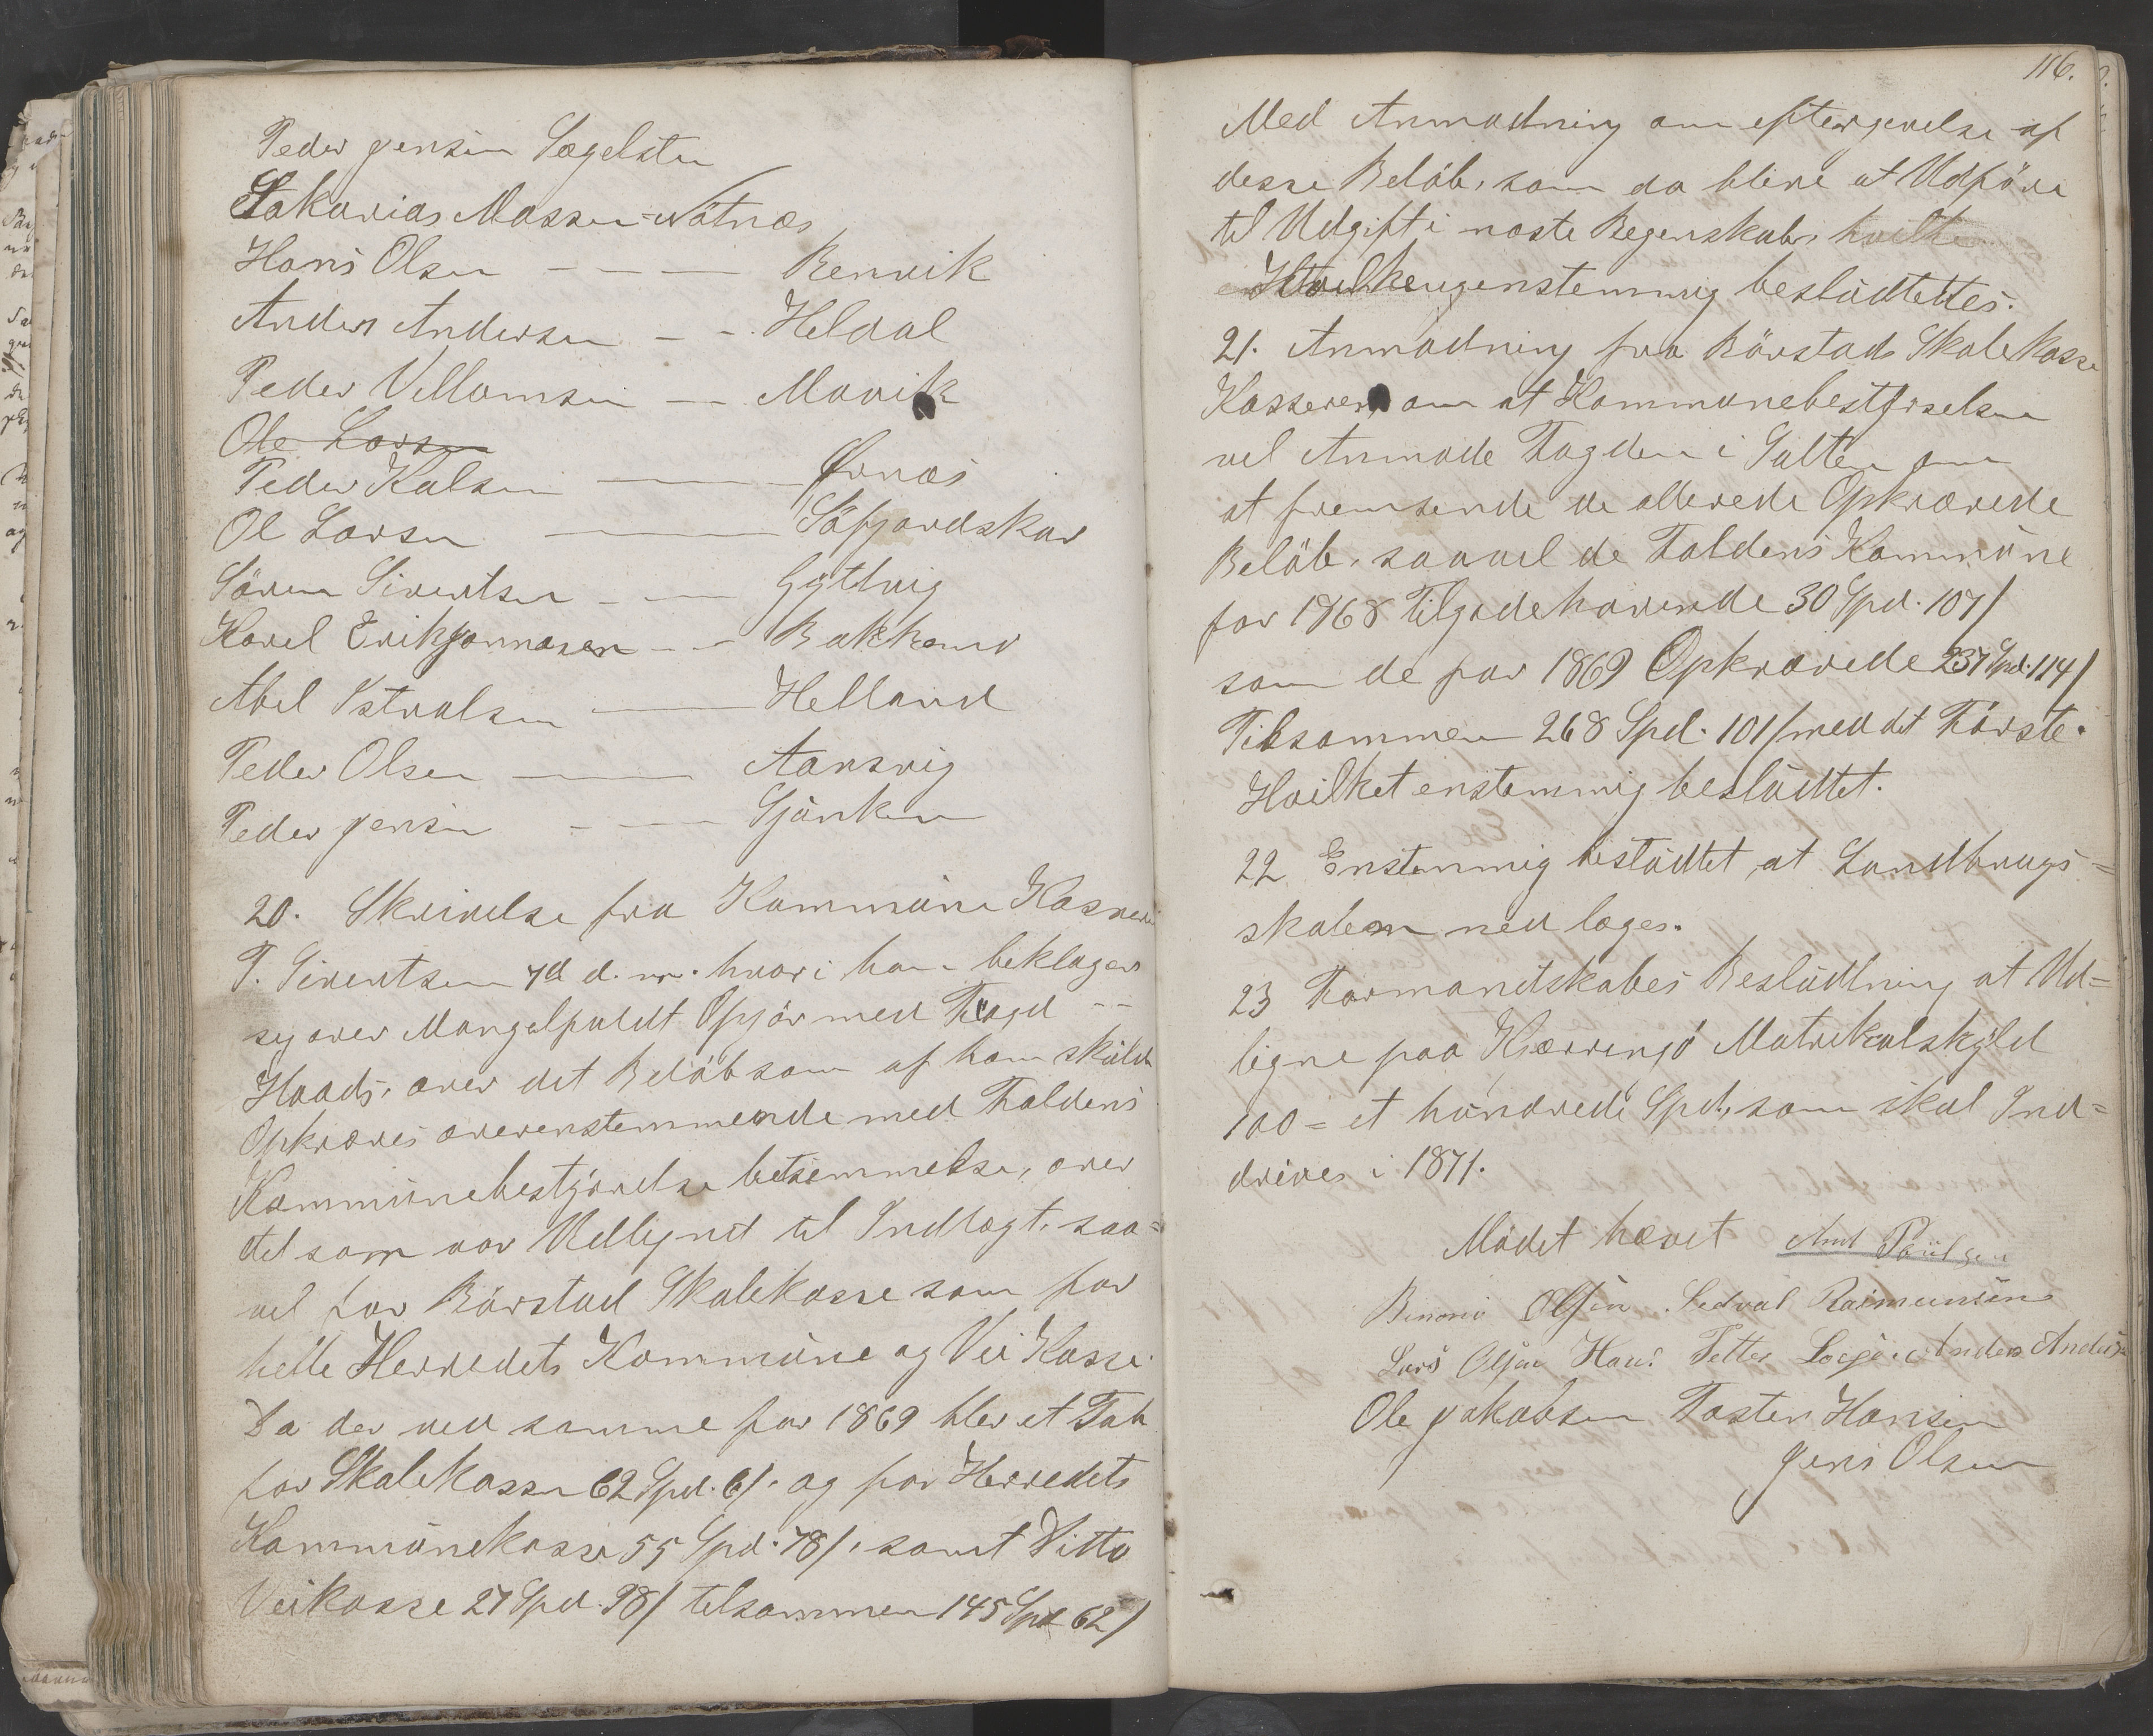 Peder Jensen Sægelsten
Sakarias Mossen = Nötnæs
Hans Olsen - - - Renvik
Anders Andersen - - Heldal
Peder Villomsen - - Movik
Ole Larsen
Peder Kalsen - Ørnæs
Ol Larsen - Söfjordskar
Sören Sivertsen - - Gÿltvig
Karel Erik Jonnasen - - Bakken
Abel Istvalsen - Helland
Peder Olsen - Aansvig
Peder Jensen - - Sjönken
20. Skrivelse fra Kommüne Kasserer
P. Sivertsen 7d d. m. hvori han beklager
sig over Mangelfuldt Opgjör med Fogd - -
Hoads, over det Belöb som af ham skülde
Opkræves overenstemmende med Foldens
Kommünebestyrelse betsemmelse, over
det som var Udlignet til Indlægt, saa=
vel for Rörstad Skolekasse som for
helle Herredets Kommüne og Vei Kasse.
Da der ved samme for 1869 blev et Tab
for Skolekassen 62 Spd. 6/. og for Herredets
Kommünekasse 55 Spd. 78/, samt Ditto
Veikasse 27 Spd. 98/ tilsammen 145 Spd 62/
116.
Med Anmodning om eftergivelse af
desse Belöb, som da blive at Udföre
til Udgift i næste Regenskab, hvilke
Hvilke enstemmig beslüdtettes.
21. Anmodning fra Rörstads Skole Kasse
Kasserer, om at Kommunebestyrselsen
vel Anmode Fogden i Salten om
at fremsende de allerede Opkrævede
Belöb, saavel de Foldens Kommüne
for 1868 Tilgodehavende 30 Spd. 107/
som de for 1869 Opkrævede 237 Spd. 114/
Tilsammen 268 Spd. 101/ med det Förste.
Hvilket enstemmig beslüdtet.
22 Enstemmig beslüdtet, at Landbrugs=
skolen ned læges.
23 Formandskabes Beslüdtning at Ud=
ligne paa Kjærringö Matrikulskÿld
100 = et hündrede Spd., som skal Ind=
drives i 1871.
Mödet hævet Amt Paülsen
Benoni Olsen. Sedval Rasmunsen
Lars Olsen Hans Petter Anders Anders
Ole Jakobsen Tosten Hansen
Jens Olsen